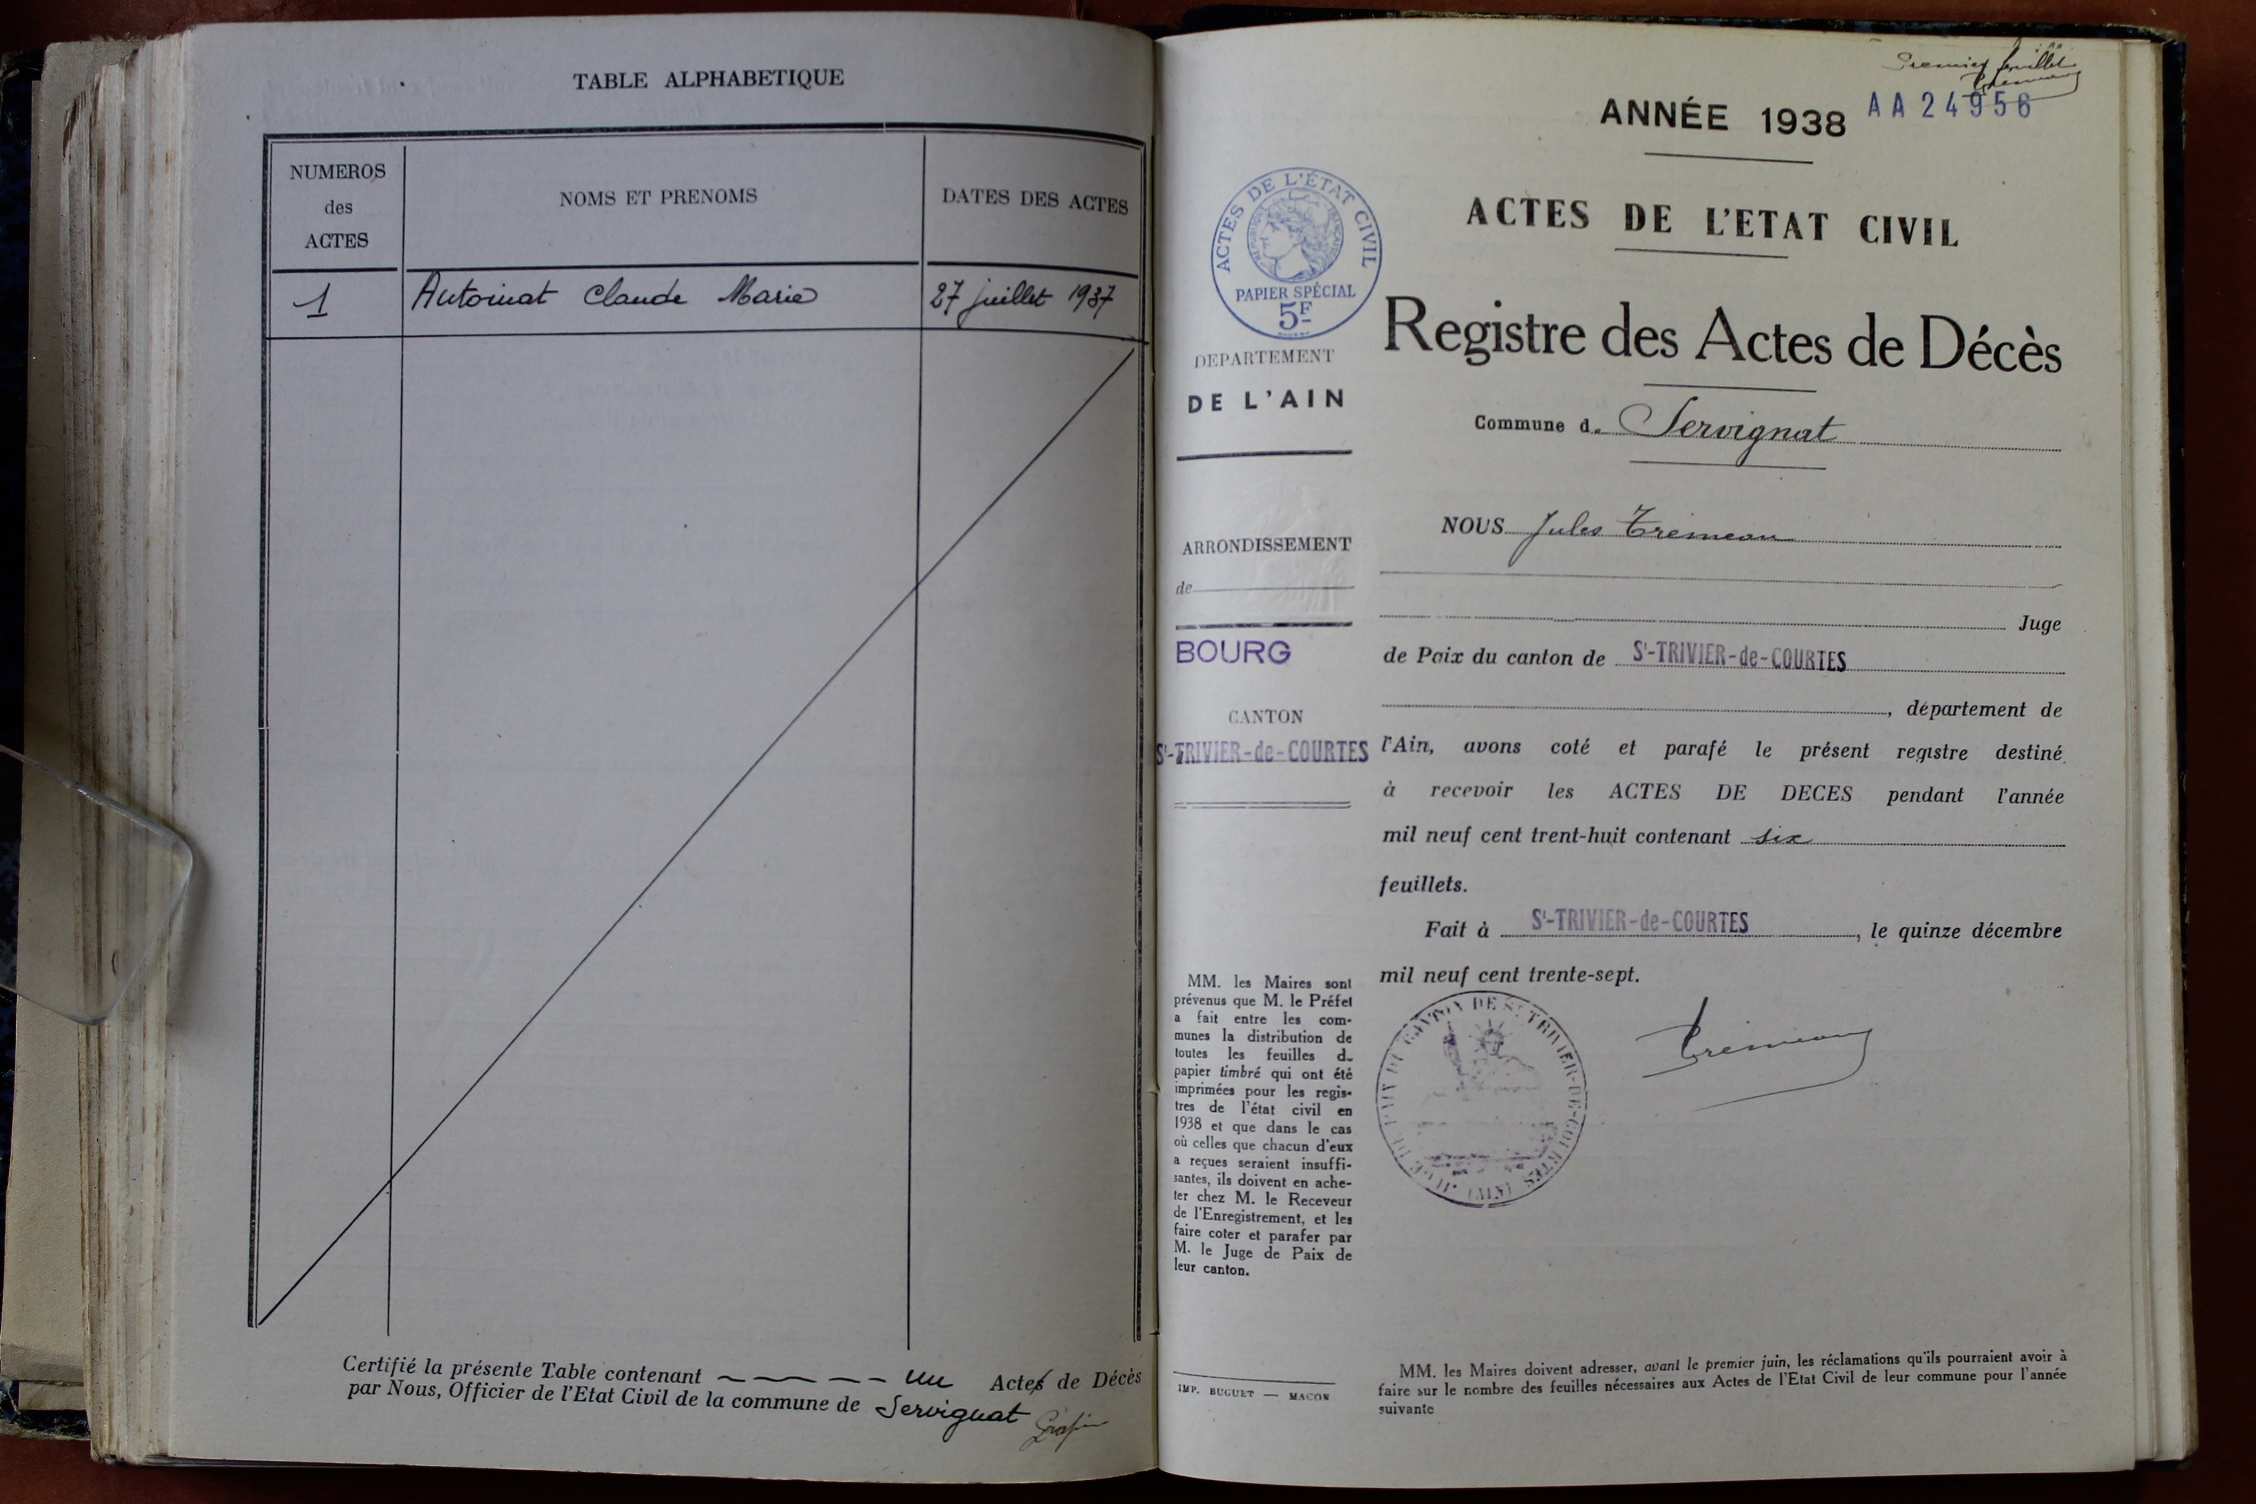 TABLE ALPHABETIQUE
NUMEROS
des
ACTES
NOMS ET PRENOMS
DATES DES ACTES
1 Antoinat Claude Marie 27 juillet 1937
Certifié la présente Table contenant un Actes de Décès
par Nous, Officier de l'Etat Civil de la commune de Servignat
Premier feuillet
Trémeau
ANNÉE 1938 AA24956
ACTES DE L'ETAT CIVIL
Registre des Actes de Décès
Commune de Servignat
ACTES DE L'ÉTAT CIVIL
RÉPUBLIQUE FRANÇAISE
PAPIER SPÉCIAL
5F
DEPARTEMENT
DE L'AIN
ARRONDISSEMENT
de
BOURG
CANTON
St-TRIVIER-de-COURTES
MM. les Maires sont
prévenus que M. le Préfet
a fait entre les com-
munes la distribution de
toutes les feuilles de
papier timbré qui ont été
imprimées pour les regis-
tres de l'état civil en
1938 et que dans le cas
où celles que chacun d'eux
a reçues seraient insuffi-
santes, ils doivent en ache-
ter chez M. le Receveur
de l'Enregistrement, et les
faire coter et parafer par
M. le Juge de Paix de
leur canton.
IMP. BUGUET — MACON
NOUS Jules Trémeau
Juge
de Paix du canton de St-TRIVIER-de-COURTES
, département de
l'Ain, avons coté et parafé le présent registre destiné
à recevoir les ACTES DE DECES pendant l'année
mil neuf cent trent-huit contenant six
feuillets.
Fait à St-TRIVIER-de-COURTES, le quinze décembre
mil neuf cent trente-sept.
JUGE DE PAIX DU CANTON DE St TRIVIER-DE-COURTES (AIN)
Trémeau
MM. les Maires doivent adresser, avant le premier juin, les réclamations qu'ils pourraient avoir à
faire sur le nombre des feuilles nécessaires aux Actes de l'Etat Civil de leur commune pour l'année
suivante